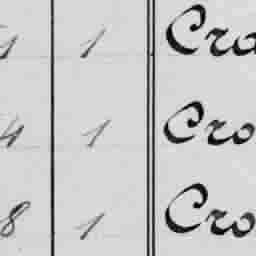 1 1 Cro
4 1 Cro
8 1 Cro